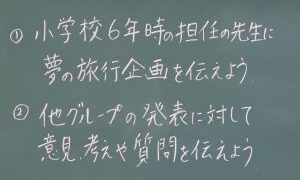 ① 小学校6年時の担任の先生に
夢の旅行企画を伝えよう
② 他グループの発表に対して
意見、考えや質問を伝えよう